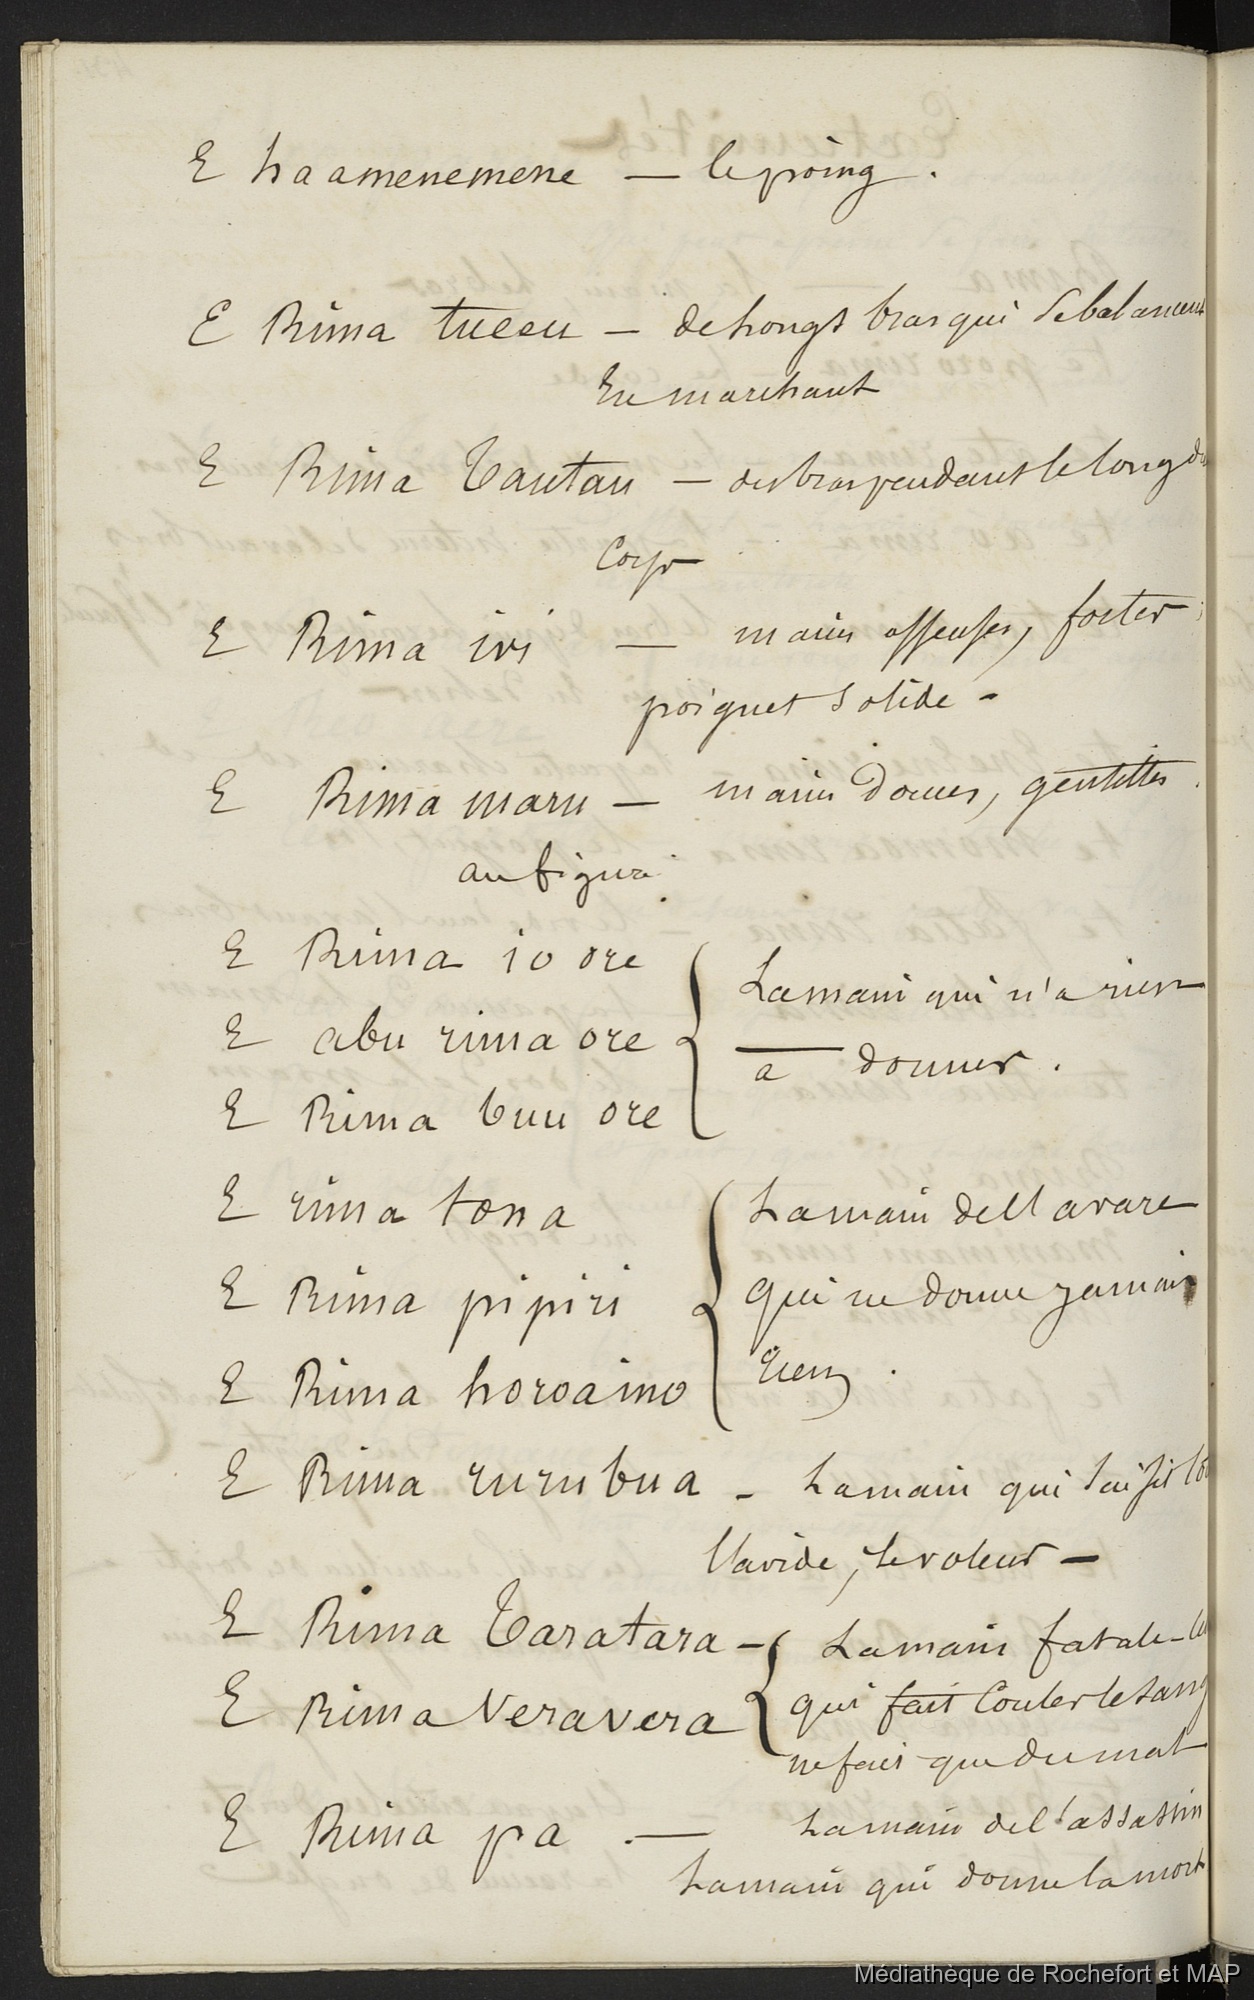 E haamenemene — le poing.
E Rima tueeu — de longs bras qui se balancent
En marchant
E Rima Tautau — des bras pendant le long du
Corps
E Rima ivi — mains osseuses, fortes
poignet solide -
E Rima maru — mains douces, gentilles.
au figuré
E Rima io ore
La main qui n'a rien
E abu rima ore
à donner.
E Rima buu ore
E rima tona
La main de l'avare
E Rima pipiri
qui ne donne jamais
rien.
E Rima horoaino
E Rima rurubua - La main qui saisit
l'avide, le voleur —
E Rima Taratara -
La main fatale -
E Rima Veravera
qui fait couler le sang
ne fait que du mal
E Rima pa — La main de l'assassin
La main qui donne la mort
Médiathèque de Rochefort et MAP